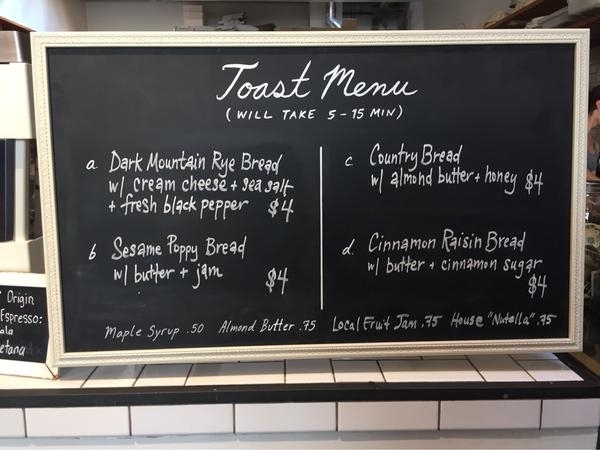 Toast Menu
(WILL TAKE 5-15 MIN)
a. Dark Mountain Rye Bread
w/ cream cheese + sea salt
+ fresh black pepper $4
b Sesame Poppy Bread
w/ butter + jam $4
c. Country Bread
w/ almond butter + honey $4
d. Cinnamon Raisin Bread
w/ butter + cinnamon sugar
$4
Maple Syrup .50 Almond Butter .75 Local Fruit Jam .75 House "Nutella" .75
Origin
Espresso:
ala
etana